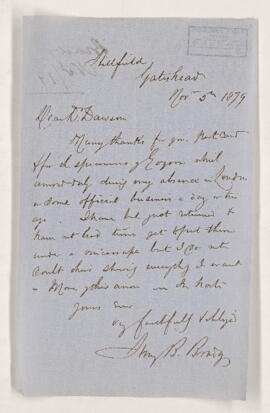 Hillfield
Gateshead
Nov 5th 1879
Dear Dr. Dawson
Many thanks for your Post Card
& for the specimens of Eozoon which
arrived duly during my absence in London
on some official business a day or two
ago. I have but just returned &
have not had time yet to put them
under a microscope but I do not
doubt their showing everything I want
Yours Ever
very faithfully & obliged
Henry B. Brady